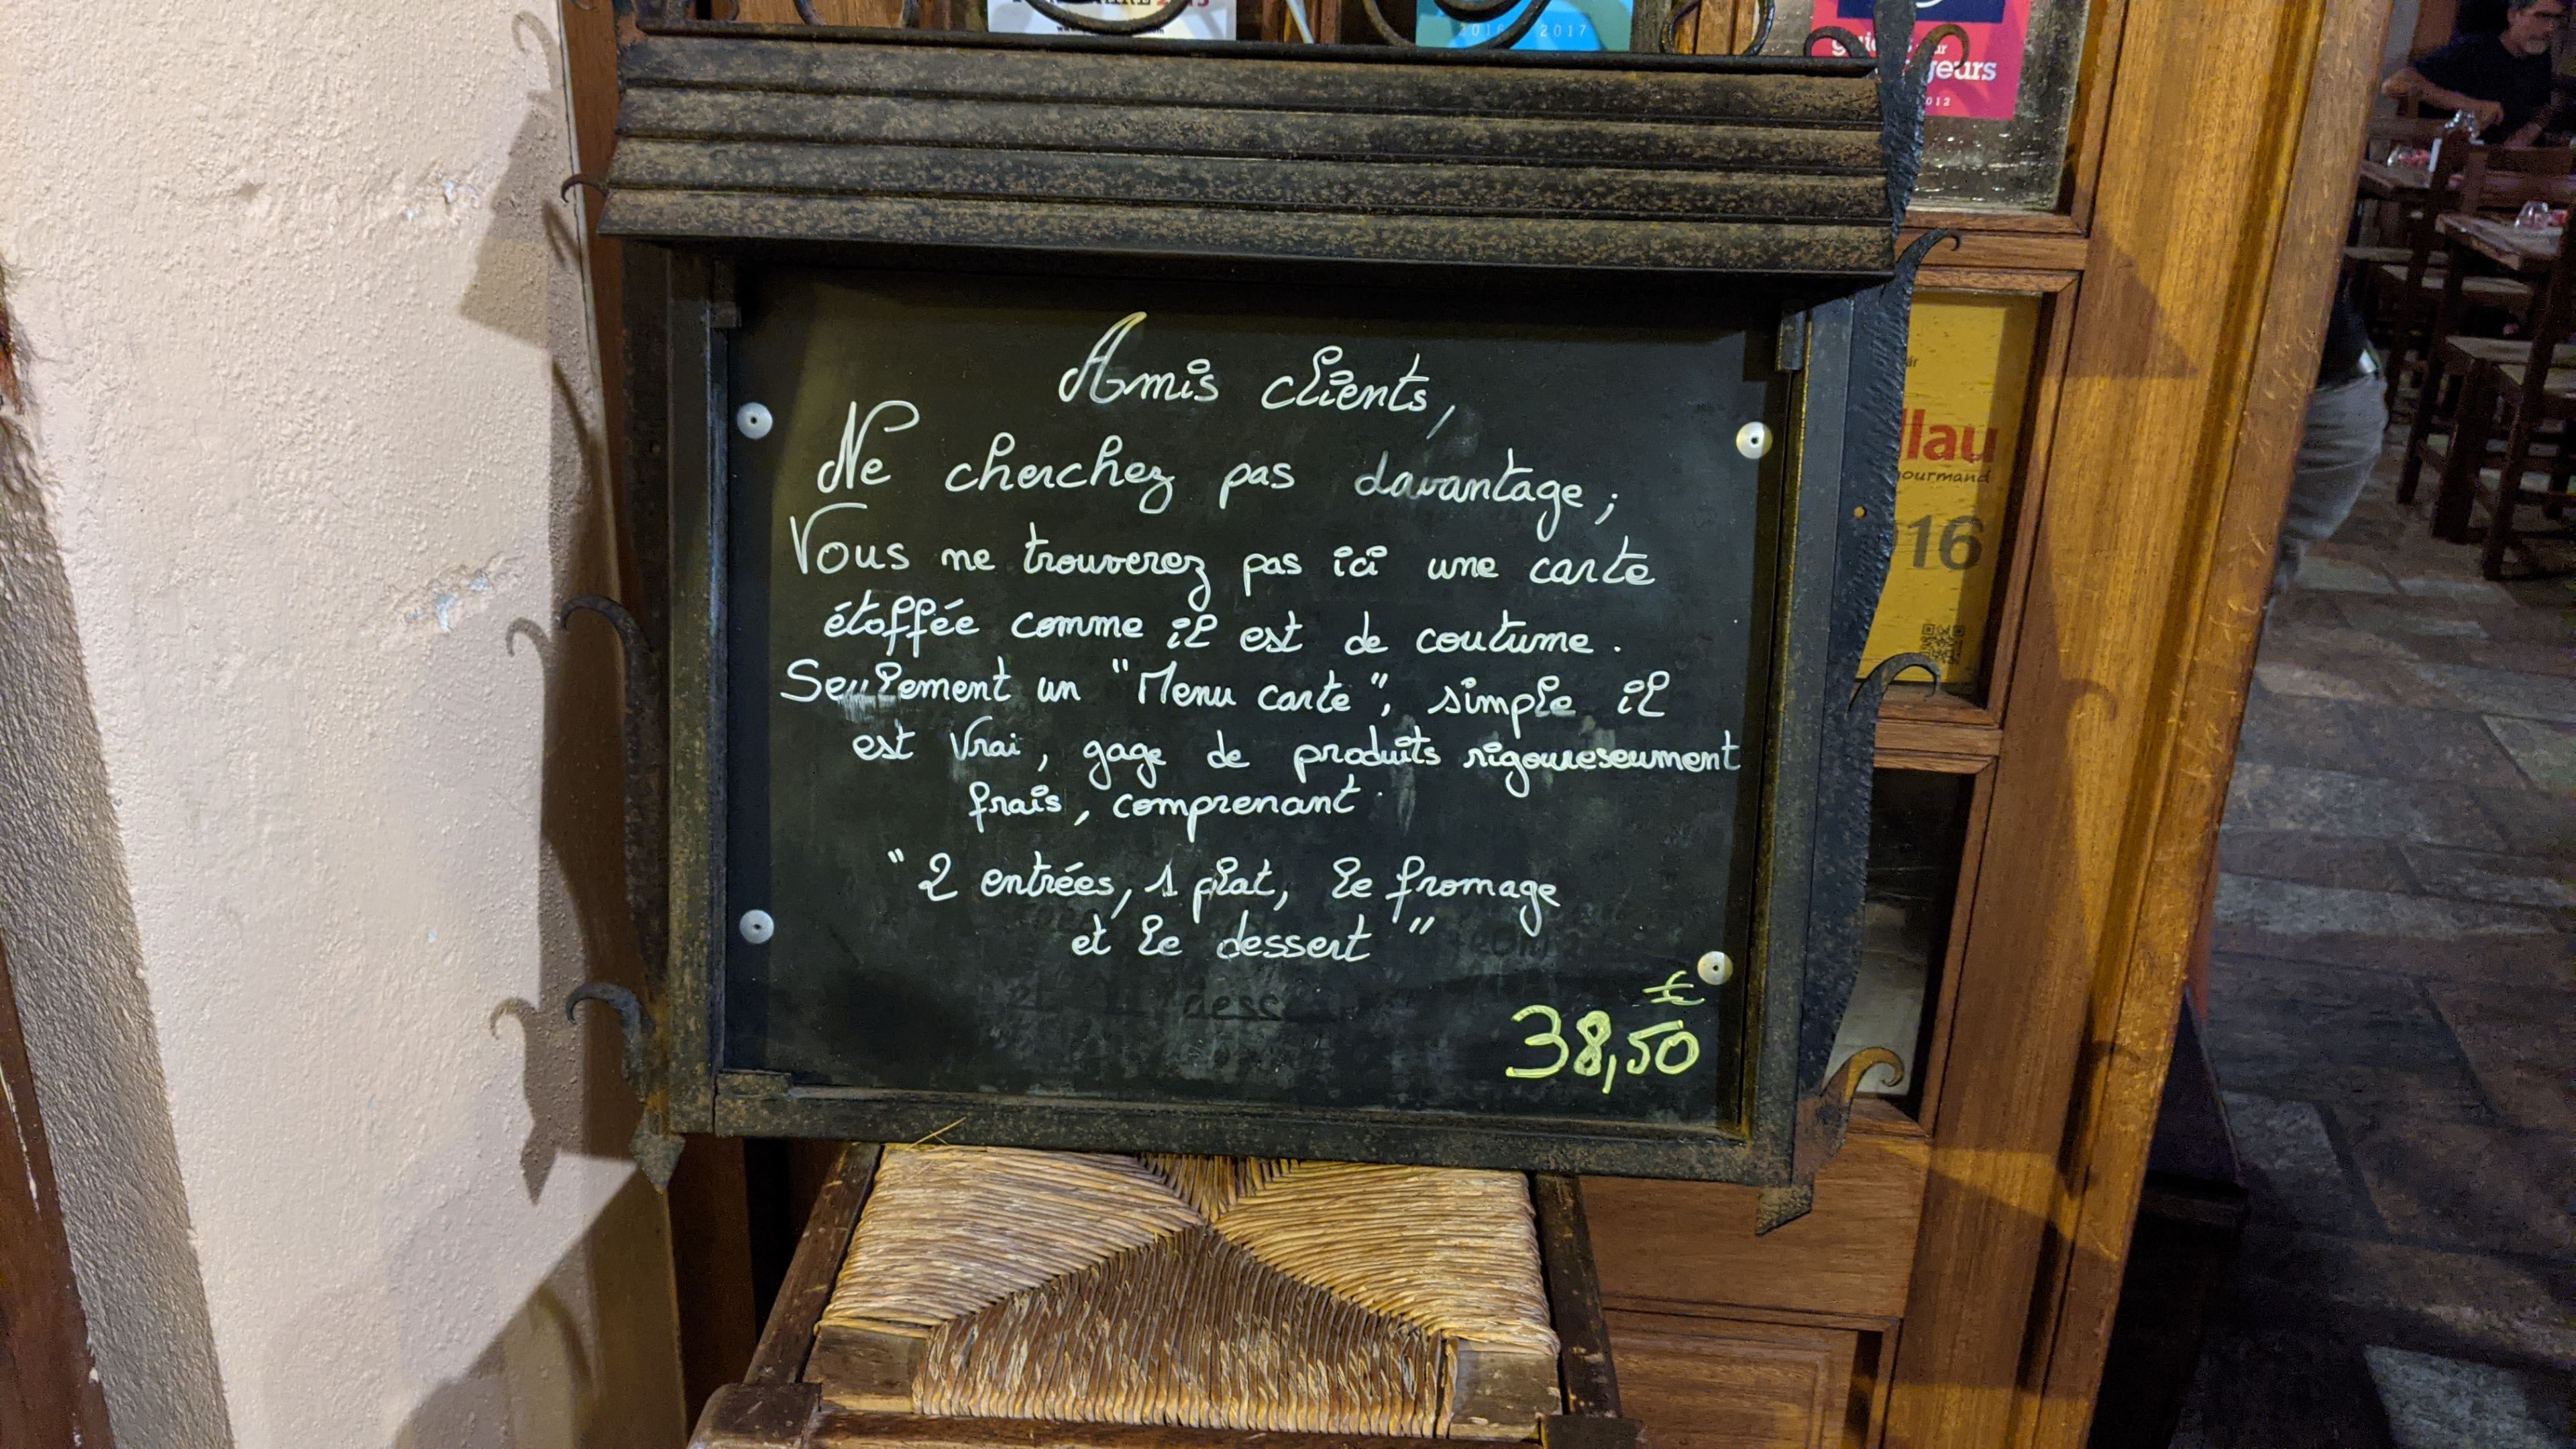 2016 2017
geurs
012
Amis clients,
Ne cherchez pas davantage;
Vous ne trouverez pas ici une carte
étoffée comme il est de coutume.
Seulement un "Menu carte", simple il
est vrai, gage de produits rigoureseument
frais, comprenant
"2 entrées, 1 plat, le fromage
et le dessert"
€
38,50
llau
ourmand
16